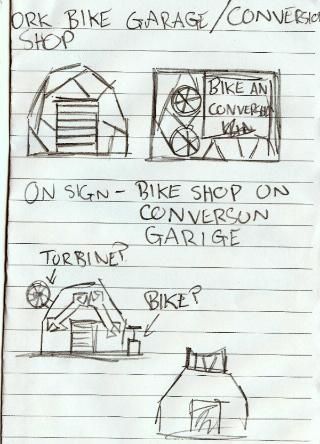 ORK BIKE GARAGE/CONVERSIO
SHOP
BIKE AN
CONVERSI
ON SIGN - BIKE SHOP ON
CONVERSUN
GARIGE
TURBINE?
BIKE?